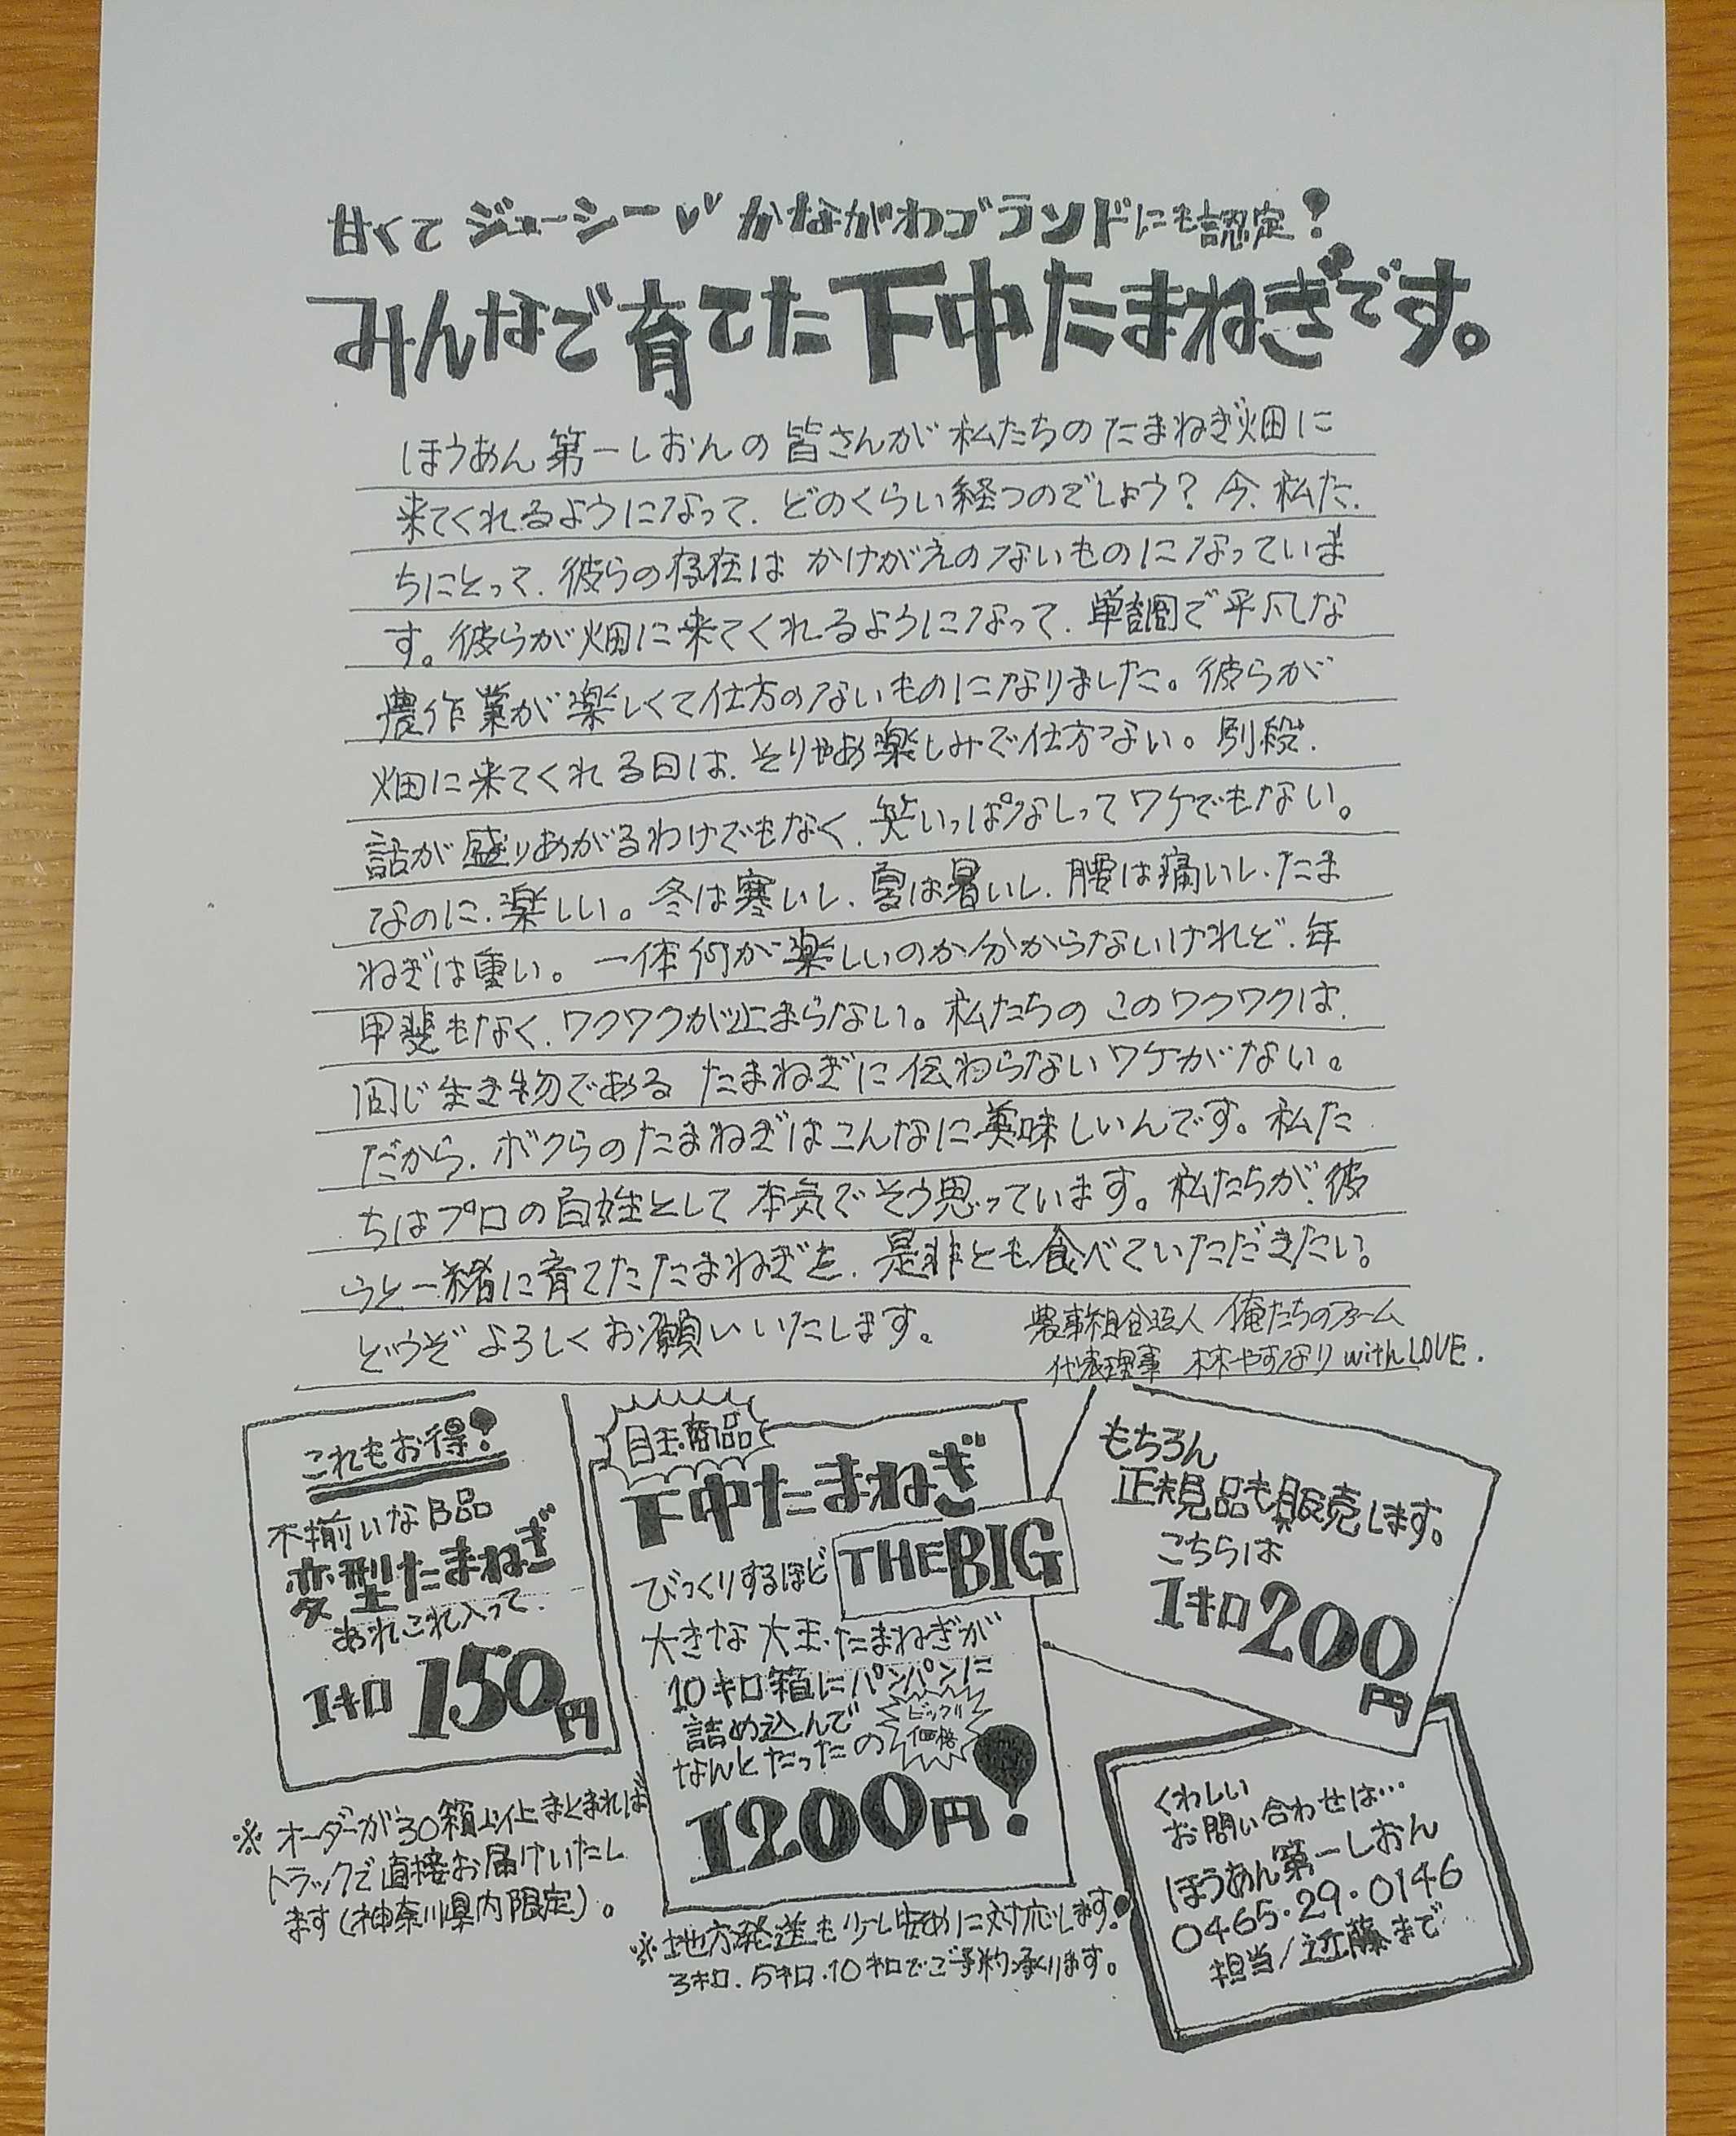 甘くて ジューシー♥♥ かながわブランドにも認定!
みんなで育てた下中たまねぎです。
ほうあん第一しおんの皆さんが私たちのたまねぎ畑に
来てくれるようになって、どのくらい経つのでしょう?今、私た
ちにとって、彼らの存在はかけがえのないものになっていま
す。彼らが畑に来てくれるようになって、単調で平凡な
農作業が楽しくて仕方のないものになりました。彼らが
畑に来てくれる日は、そりゃあ楽しみで仕方ない。別段、
話が盛りあがるわけでもなく、笑いっぱなしってワケでもない。
なのに、楽しい。冬は寒いし、夏は暑いし、腰は痛いし、たま
ねぎは重い。一体何が楽しいのか分からないけれど、年
甲斐もなく、ワクワクが止まらない。私たちのこのワクワクは、
同じ生き物であるたまねぎに伝わらないワケがない。
だから、ボクらのたまねぎはこんなに美味しいんです。私た
ちはプロの百姓として本気でそう思っています。私たちが、彼
らと一緒に育てたたまねぎを、是非とも食べていただきたい。
どうぞよろしくお願いいたします。
農事組合法人 俺たちのファーム
代表理事 林やすなり with LOVE.
これもお得!
不揃いなB品
変型たまねぎ
あれこれ入って
1キロ 150円
目玉商品
下中たまねぎ
THE BIG
びっくりするほど
大きな大玉たまねぎが
10キロ箱にパンパンに
詰め込んで
なんとたったの
ビックリ
価格
1200円!
もちろん
正規品も販売します。
こちらは
1キロ 200
円
※オーダーが30箱以上まとまれば
トラックで直接お届けいたし
ます(神奈川県内限定)。
※地方発送も少し安めに対応します!
3キロ、5キロ、10キロでご予約承ります。
くわしい
お問い合わせは…
ほうあん第一しおん
0465・29・0146
担当/近藤まで